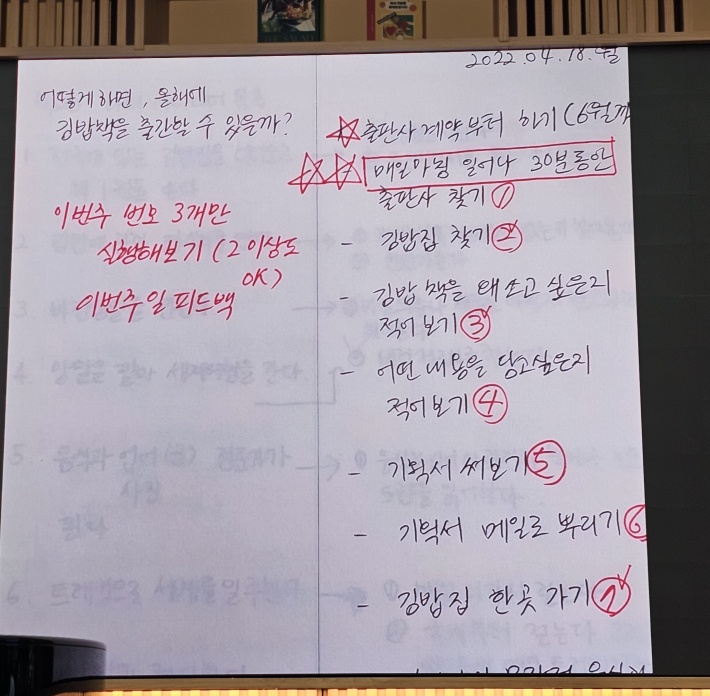 2022.04.18.월
어떻게하면, 올해에
김밥책을 출간할 수 있을까?
이번주 번호 3개만
실행해보기 (2 이상도
OK)
이번주일 피드백
☆ 출판사 계약부터 하기 (6월까
☆☆ 매일아침 일어나 30분동안
출판사 찾기 ①
- 김밥집 찾기 ②
- 김밥 책을 왜 쓰고 싶은지
적어보기 ③
- 어떤 내용을 담고싶은지
적어보기 ④
- 기획서 써보기 ⑤
- 기획서 메일로 뿌리기 ⑥
- 김밥집 한곳 가기 ⑦